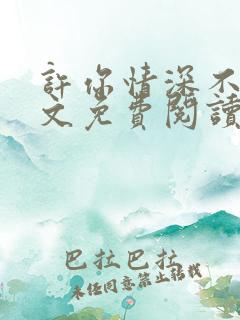 許你情深不
文免費閱讀
巴拉巴拉
未经同意禁止转载